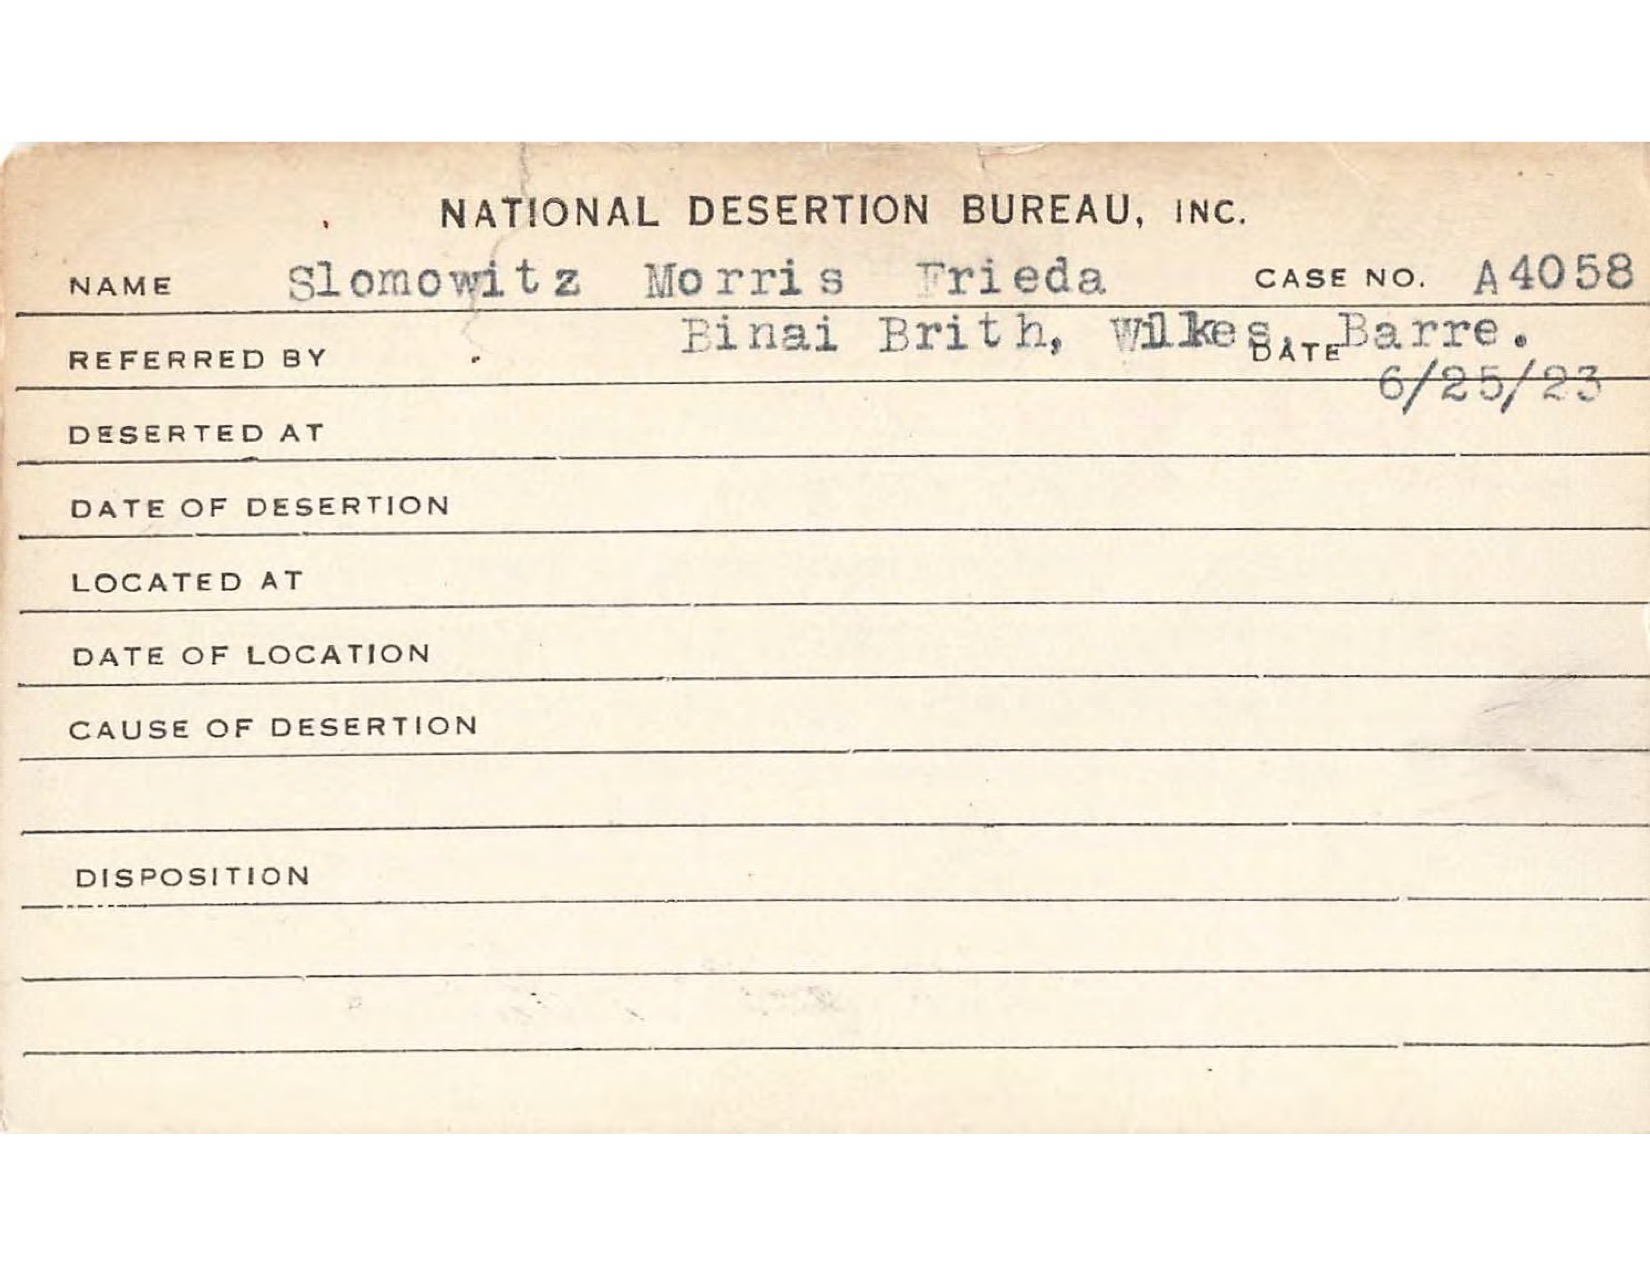 NATIONAL DESERTION BUREAU, INC.
NAME Slomowitz Morris Frieda CASE NO. A4058
REFERRED BY Binai Brith, Wilkes, Barre.
DATE 6/25/23
DESERTED AT
DATE OF DESERTION
LOCATED AT
DATE OF LOCATION
CAUSE OF DESERTION
DISPOSITION